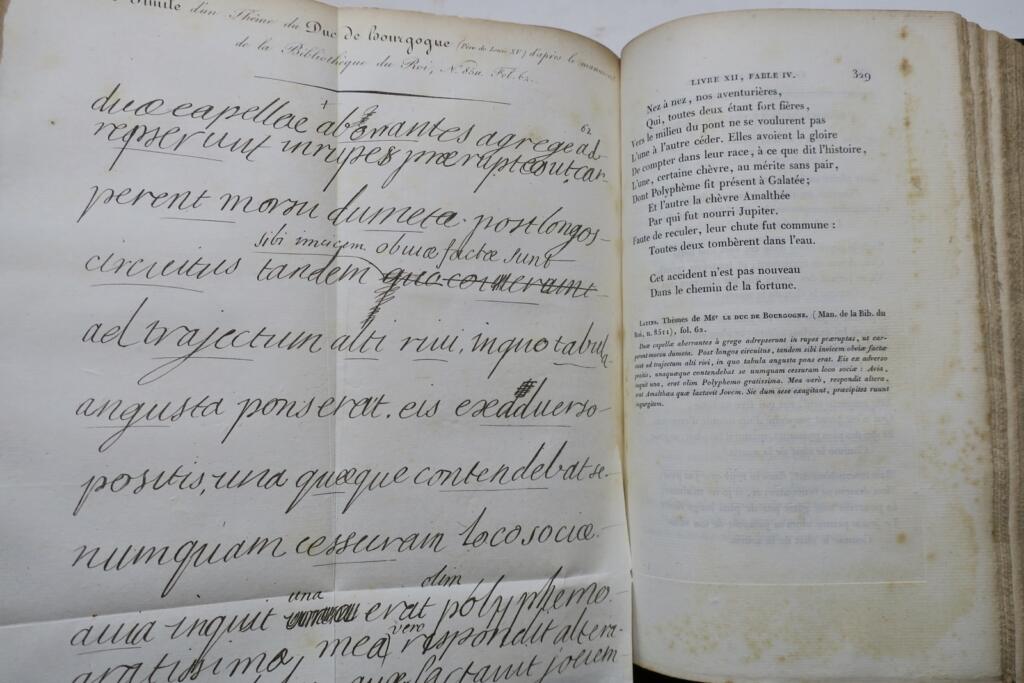 Simile d'un Thême du Duc de Bourgogue (Père de Louis XV) d'après le manuscrit
de la Bibliothèque du Roi, N.º 8511 Fol. 62.
62
duæ capellæ aberrantes agrege ad-
repserunt inrupes præruptas ut car-
perent morsu dumeta. post longos
sibi invicem obviæ factæ sunt
circuitus tandem
ad trajectum alti rivi, inquo tabula
angusta pons erat. eis exadverso
positis, una quæque contendebat se
numquam cessuram loco sociæ.
una olim
avia inquit erat polyphemo
vero
gratissima, mea respondit altera
quæ lactavit jovem
LIVRE XII, FABLE IV. 329
Nez à nez, nos aventurières,
Qui, toutes deux étant fort fières,
Vers le milieu du pont ne se voulurent pas
L'une à l'autre céder. Elles avoient la gloire
De compter dans leur race, à ce que dit l'histoire,
L'une, certaine chèvre, au mérite sans pair,
Dont Polyphème fit présent à Galatée;
Et l'autre la chèvre Amalthée
Par qui fut nourri Jupiter.
Faute de reculer, leur chute fut commune :
Toutes deux tombèrent dans l'eau.
Cet accident n'est pas nouveau
Dans le chemin de la fortune.
LATINS. Thèmes de Mgr LE DUC DE BOURGOGNE. (Man. de la Bib. du
Roi, n. 8511), fol. 62.
Duæ capellæ aberrantes à grege adrepserunt in rupes præruptas, ut car-
perent morsu dumeta. Post longos circuitus, tandem sibi invicem obviæ factæ
sunt ad trajectum alti rivi, in quo tabula angusta pons erat. Eis ex adverso
positis, unaquæque contendebat se nunquam cessuram loco sociæ : Avia,
inquit una, erat olim Polyphemo gratissima. Mea verò, respondit altera,
erat Amalthæa quæ lactavit Jovem. Sic dum sese exagitant, præcipites ruunt
in gurgitem.